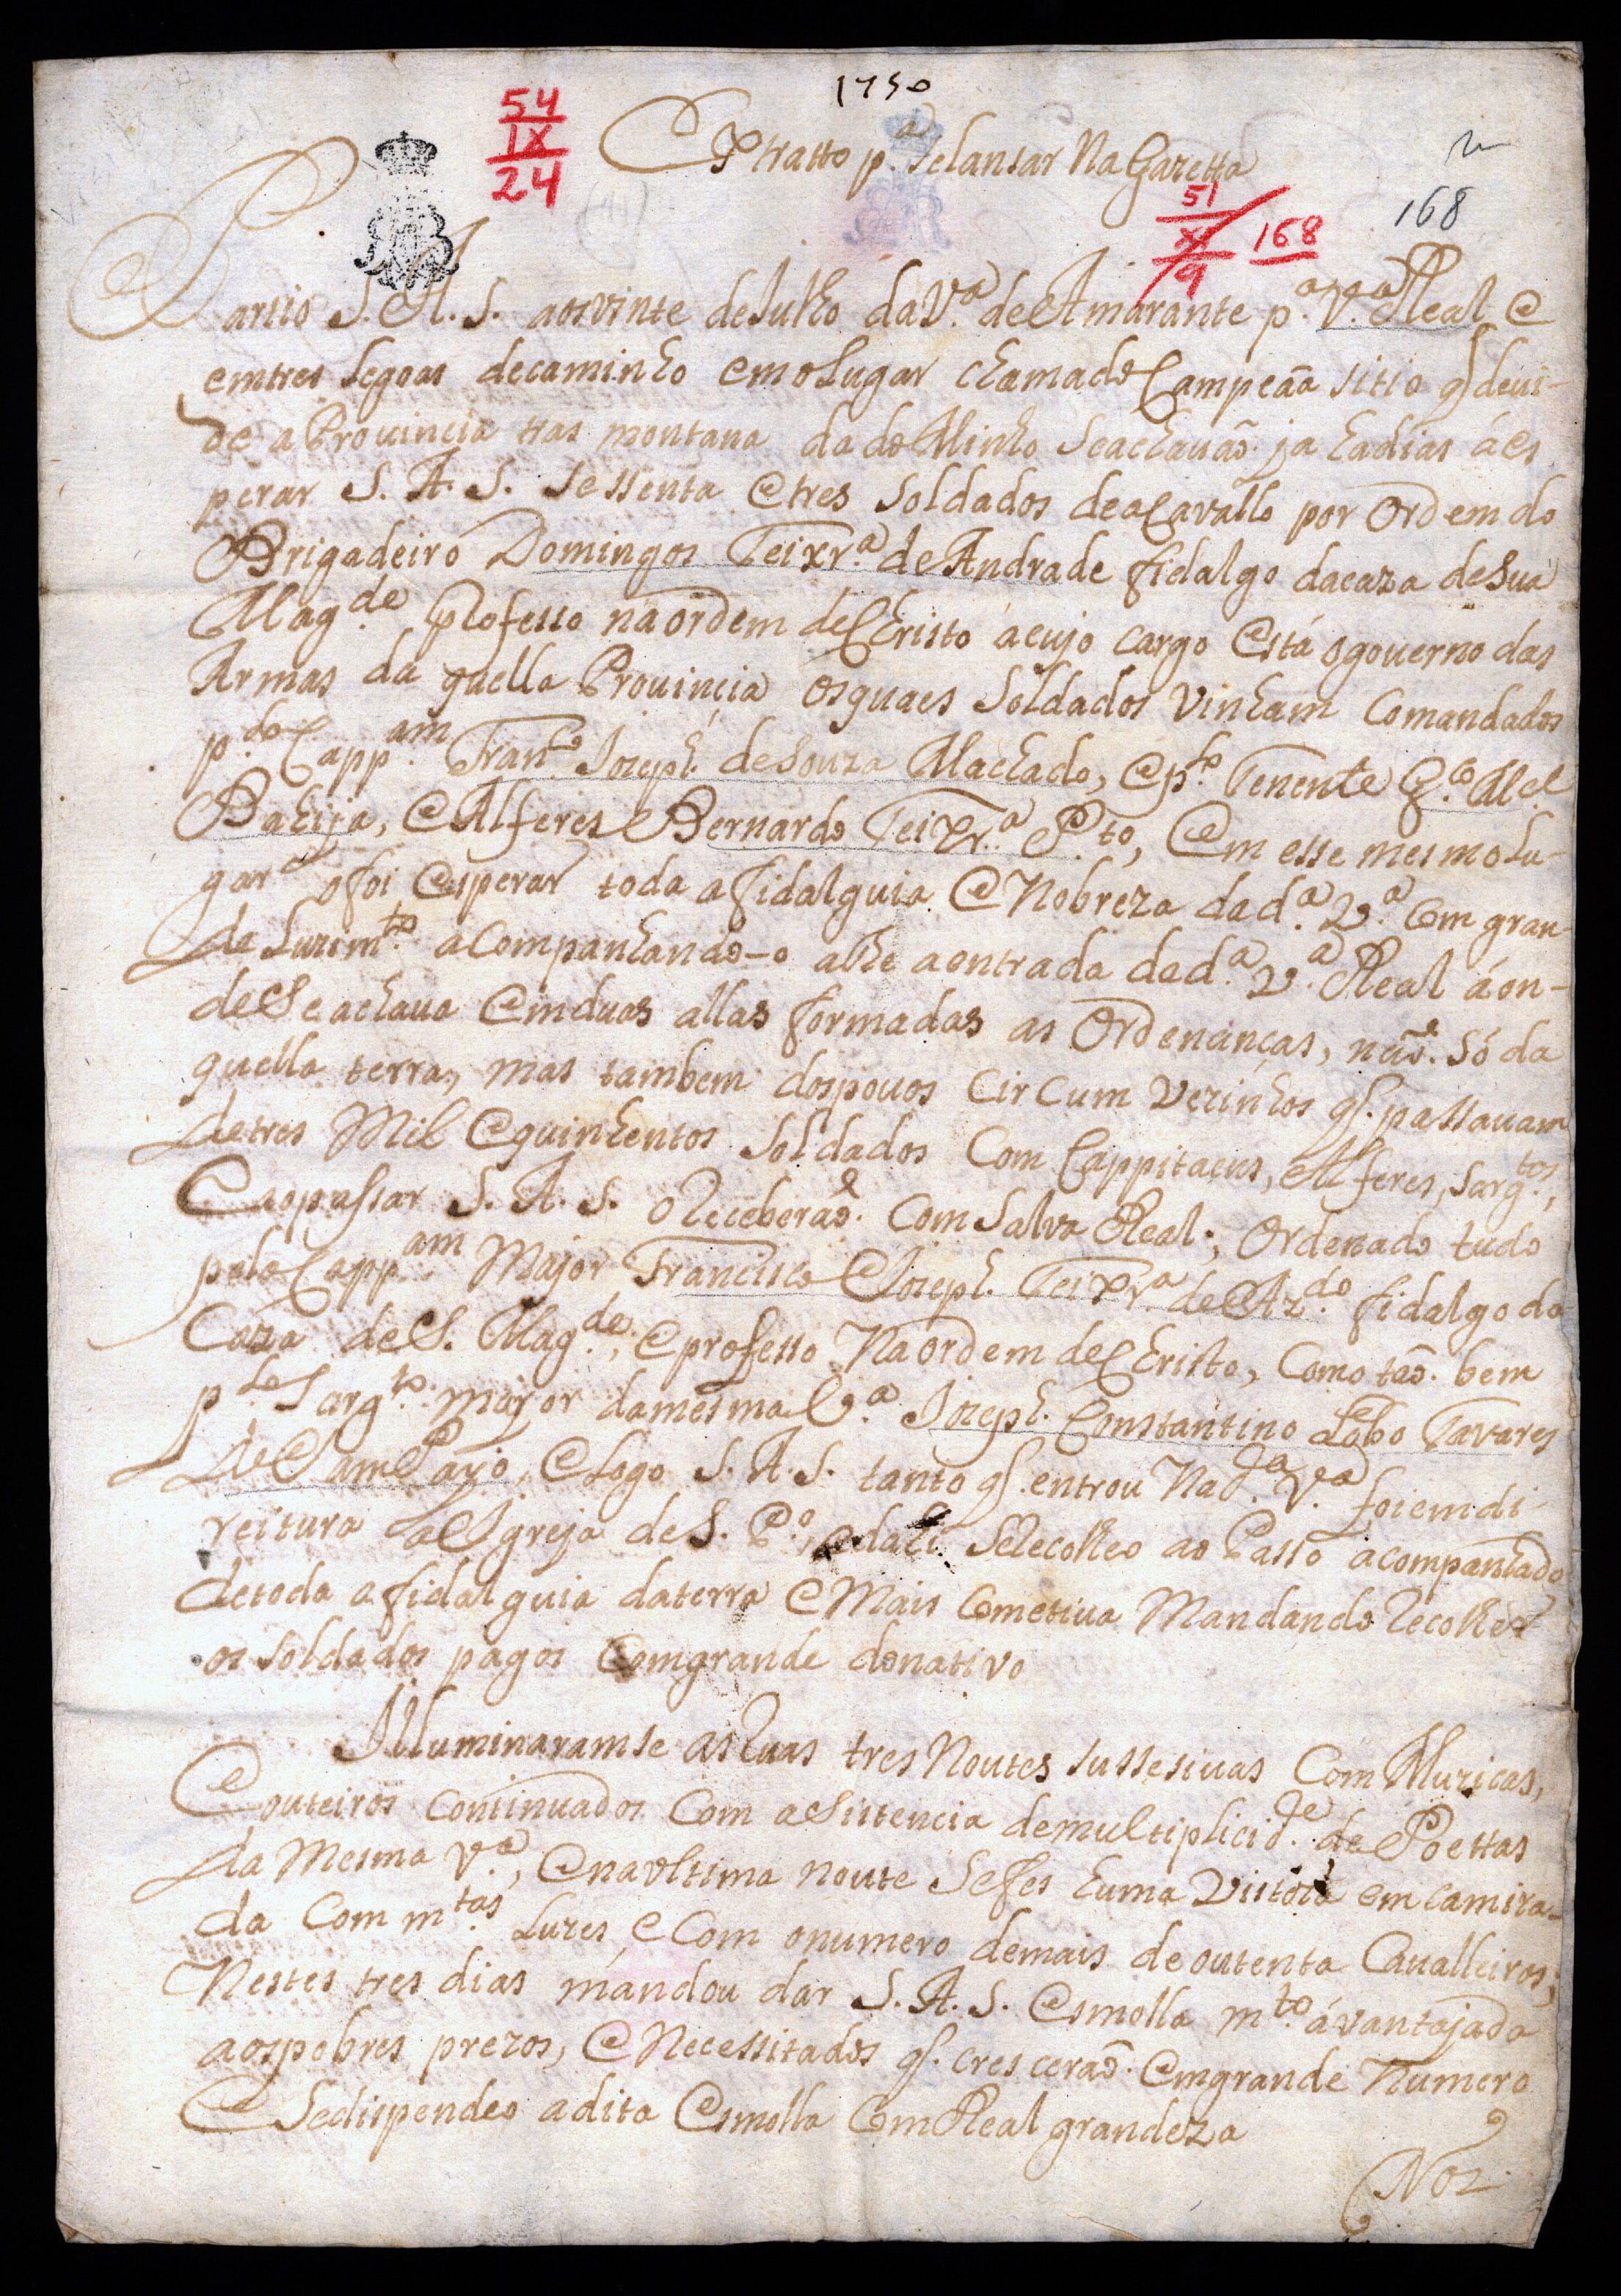 1750
54
IX
24
Extratto p.ª se lansar Na Gazetta
51
XI
9
168
168
Partio S. A. S. aos vinte de Julho da V.ª de Amarante p.ª V.ª Real e
em tres legoas de caminho em o lugar chamado Campeaã sitio q̃ devi-
de a Provincia tras montana da do Minho se achavaõ ja ha dias á es
perar S. A. S. sessenta e tres soldados de a Cavallo por Ordem do
Brigadeiro Domingos Teixr.ª de Andrade fidalgo da caza de Sua
Mag.de Professo na ordem de Christo a cujo cargo está o governo das
Armas da quella Provincia os quaes Soldados vinham Comandados
p.lo Capp.am Fran.co Jozeph. de Souza Machado, e p.lo Tenente G.lo M.el
Bahija, e Alferes Bernardo Teixr.ª P.to, em esse mesmo lu-
gar o foi esperar toda a fidalguia e Nobreza da d.ª V.ª Com gran-
de Luzim.to acompanhando-o athe a entrada da d.ª V.ª Real áon-
de Se achava em duas allas formadas as Ordenanças, naõ. Só da
quella terra, mas tambem dos povos Circum vezinhos q̃. passavam
de tres Mil e quinhentos Soldados Com Cappitaens, Alferes, Sarg.tos,
e ao passar S. A. S. o Receberaõ. Com Salva Real; Ordenado tudo
pelo Capp.am Major Francisco Jozeph. Teixr.ª de Az.do fidalgo da
Caza de S. Mag.de, e professo Na ordem de Christo, Como taõ. bem
p.lo Sarg.to mayor da mesma V.ª Jozeph. Constantino Lobo Tavares
de Sam Payo, e logo S. A. S. tanto q̃. entrou Na d.ª V.ª foi em di-
reitura a Igreja de S. P.º, e dahi Se recolheo ao Passo acompanhado
de toda a fidalguia da terra e Mais Cometiva Mandando recolher
os Soldados pagos Com grande donativo
Illuminaramse as Ruas tres Noutes sussesivas Com Muzicas,
e outeiros continuados Com aSistencia de multiplicid.de de Poettas
da Mesma V.ª, e na ultima noute Se fes huma Vistoza em camiza-
da Com m.tas Luzes e Com o numero de mais de outenta Cavalleiros;
Nestes tres dias mandou dar S. A. S. Esmolla m.to ávantajada
aos pobres prezos, e Necessitados q̃. cresceraõ. em grande Numero
e Se dispendeo a dita Esmolla Com Real grandeza
Noz